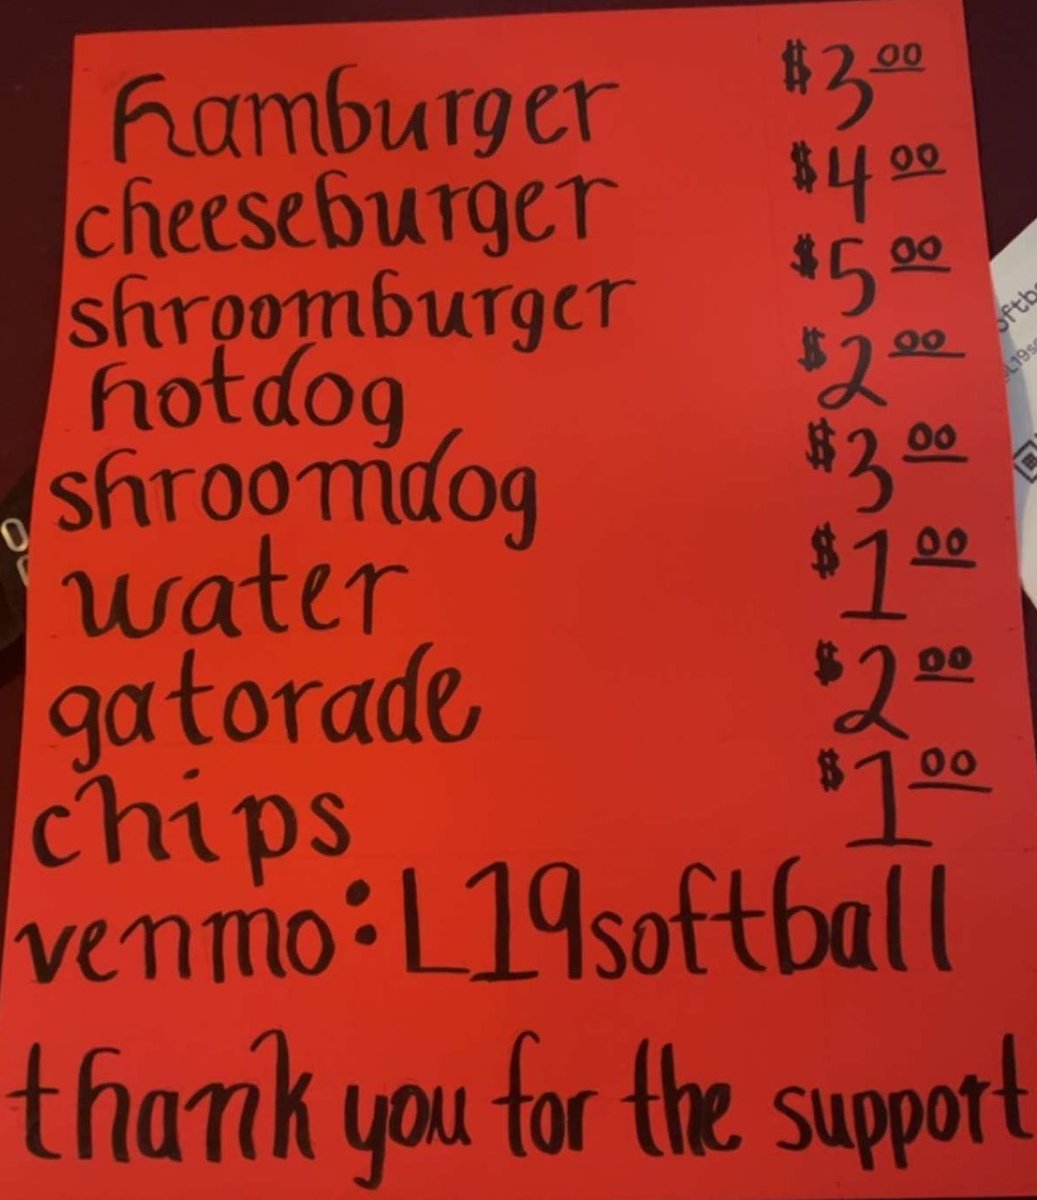 hamburger $3.00
cheeseburger $4.00
shroomburger $5.00
hotdog $2.00
shroomdog $3.00
water $1.00
gatorade $2.00
chips $1.00
venmo: L19softball
thank you for the support